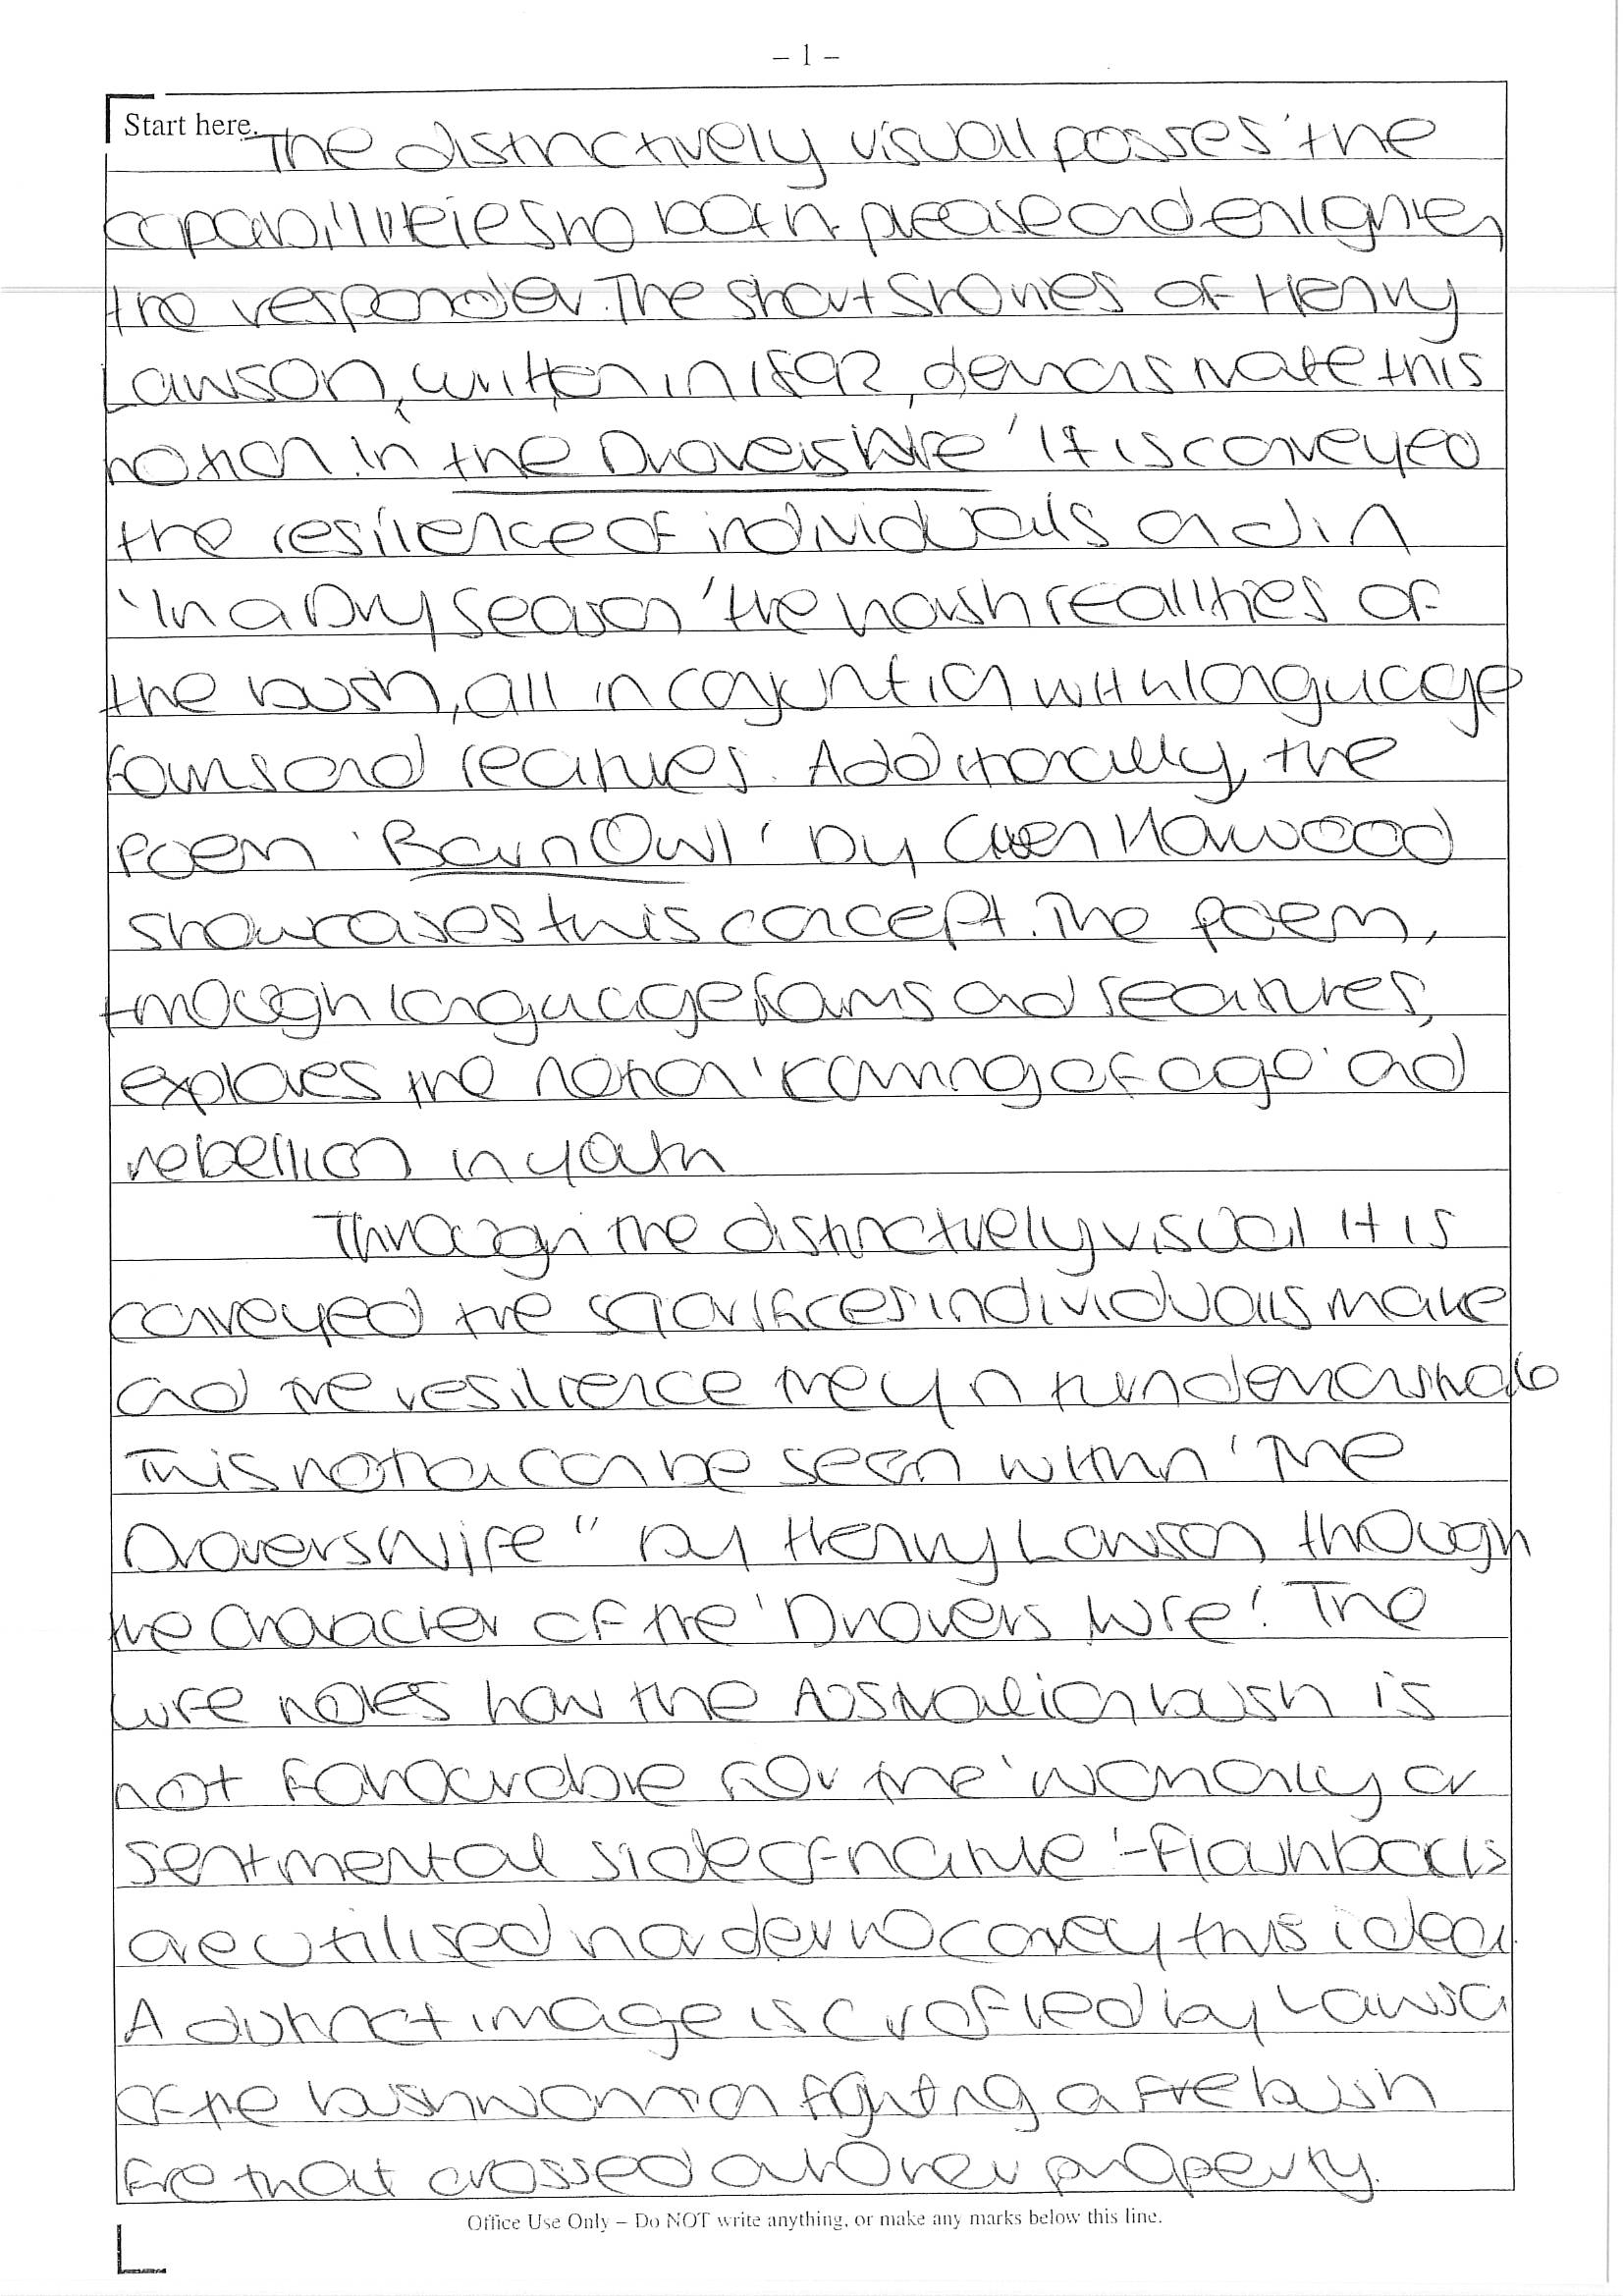 – 1 –
Start here.
The distinctively visual posses the
capabilities to both please and enlighten
the responder. The short stories of Henry
Lawson, written in 1892, demonstrate this
notion. In 'the Drovers Wife' it is conveyed
the resilience of individuals and in
'In a Dry Season' the harsh realities of
the bush, all in conjuntion with language
forms and features. Additionally, the
poem 'Barn Owl' by Gwen Harwood
showcases this concept. The poem,
through language forms and features,
explores the notion 'coming of age' and
rebellion in youth
Through the distinctively visual it is
conveyed the sacrifices individuals make
and the resilience they in turn demonstrate
This notion can be seen within 'The
Drovers Wife" by Henry Lawson through
the character of the 'Drovers Wife'. The
wife notes how the Australian bush is
not favourable for the 'womanly or
sentimental side of nature' - flashbacks
are utilised in order to convey this idea.
A distinct image is crafted by Lawson
of the bushwoman fighting a fire bush
fire that crossed onto her property.
Office Use Only – Do NOT write anything, or make any marks below this line.